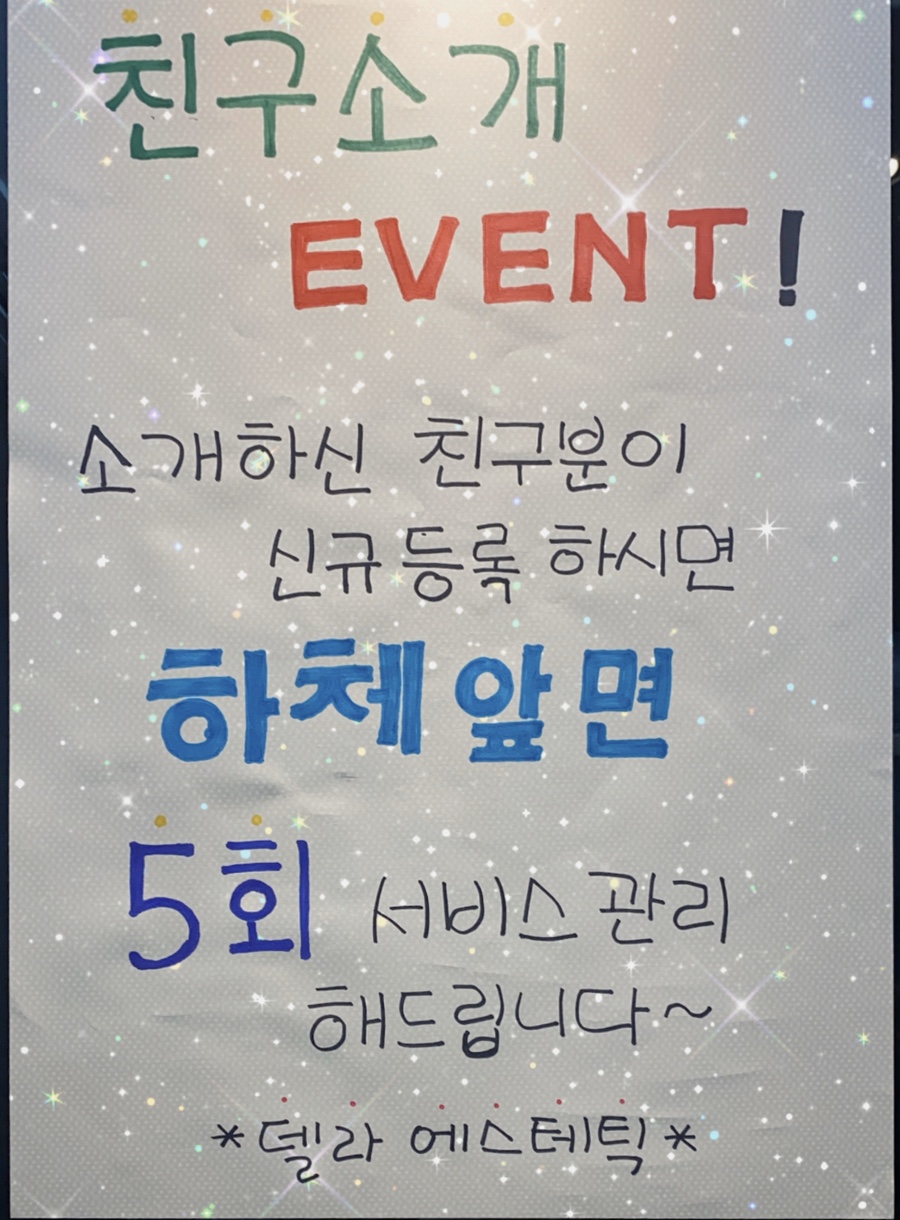 친구소개
EVENT!
소개하신 친구분이
신규등록 하시면
하체앞면
5회 서비스관리
해드립니다~
*델라 에스테틱*